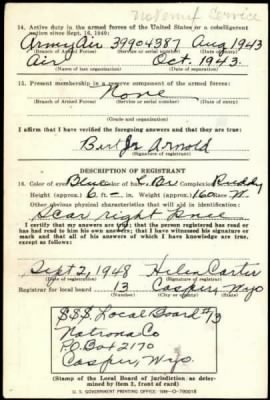 14. Active duty in the armed forces of the United States or a cobelligerent
nation since Sept. 16, 1940:
Army Air 39904987 Aug 1943
(Branch of Armed Forces) (Service or serial number) (Date of entry)
Air Oct. 1943.
(Name of last organization) (Date of separation)
15. Present membership in a reserve component of the armed forces:
None
(Branch of Armed Forces) (Service or serial number) (Date of entry)
(Grade and organization)
I affirm that I have verified the foregoing answers and that they are true:
Burt Jr Arnold
(Signature of registrant)
DESCRIPTION OF REGISTRANT
16. Color of eyes Blue Color of hair Br Complexion Ruddy
Height (approx.) 6 ft. – in. Weight (approx.) 160 W.
Other obvious physical characteristics that will aid in identification:
Scar right knee
I certify that my answers are true; that the person registered has read
or has had read to him his own answers; that I have witnessed his signature or
mark and that all of his answers of which I have knowledge are true,
except as follows:
Sept 2, 1948 Helen Carter
(Signature of registrar)
Registrar for local board 13 Casper, Wyo
(Number) (City or county) (State)
SSS Local Board #13
Natrona Co
P.O Box 2170
Casper, Wyo.
(Stamp of the Local Board of jurisdiction as determined
by item 2, front of card)
U. S. GOVERNMENT PRINTING OFFICE